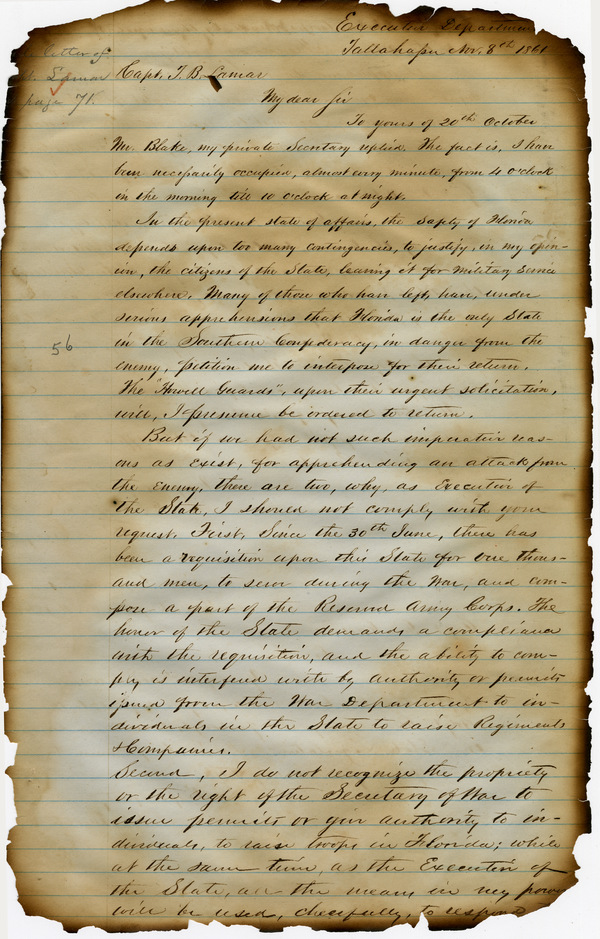 Executive Department
Tallahassee Nov. 8th 1861
letter of
Lamar
page 71.
Capt. T. B. Lamar
My dear Sir
To yours of 20th October
Mr. Blake, my private Secretary replied. The fact is, I have
been necessarily occupied, almost every minute, from 4 o'clock
in the morning till 10 o'clock at night.
In the present state of affairs, the safty of Florida
depends upon too many contingencies, to justify, in my opin-
ion, the citizens of the State, leaving it for military service
elsewhere. Many of those who have left, have, under
serious apprehensions that Florida is the only State
in the Southern Confederacy, in danger from the
enemy, petition me to interpose for their return.
The "Howell Guards", upon their urgent solicitation,
will, I presume be ordered to return.
56
But if we had not such imperative reas-
ons as exist, for apprehending an attack from
the enemy, there are two, why, as Executive of
the State, I should not comply with your
request. First, Since the 30th June, there has
been a requisition upon this State for one thous-
and men, to serve during the War, and com-
pose a part of the Reserved Army Corps. The
honor of the State demands a compliance
with the requisition, and the ability to com-
ply is interfered with by authority or permits
issued from the War Department to in-
dividuals in the State to raise Regiments
& Companies.
Second, I do not recognize the propriety
or the right of the Secretary of War to
issue permits or give authority to in-
dividuals, to raise troops in Florida; while
at the same time, as the Executive of
the State, all the means in my power
will be used, cheerfully, to respond